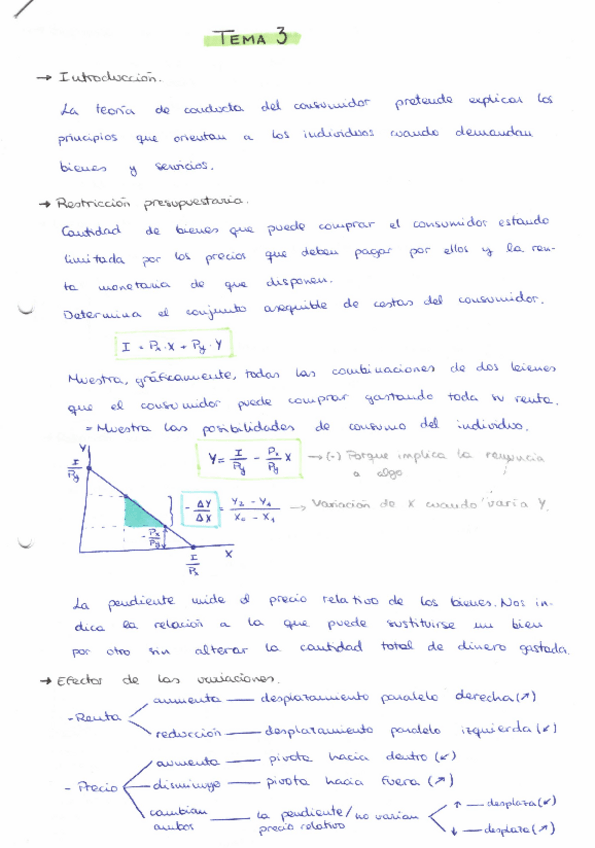 TEMA 3
→ Introducción.
La teoría de conducta del consumidor pretende explicar los
principios que orientan a los individuos cuando demandan
bienes y servicios.
→ Restricción presupuestaria.
Cantidad de bienes que puede comprar el consumidor estando
limitada por los precios que deben pagar por ellos y la ren-
ta monetaria de que disponen.
Determina el conjunto asequible de cestas del consumidor.
I = Px · X + Py · Y
Muestra, gráficamente, todas las combinaciones de dos bienes
que el consumidor puede comprar gastando toda su renta.
= Muestra las posibilidades de consumo del individuo.
Y
I/Py
Y = I/Py - Px/Py X → (-) Porque implica la renuncia
a algo
- ΔY/ΔX = Y2 - Y1 / X0 - X1 → Variación de X cuando varía Y.
- Px/Py
I/Px
X
La pendiente mide el precio relativo de los bienes. Nos in-
dica la relación a la que puede sustituirse un bien
por otro sin alterar la cantidad total de dinero gastada.
→ Efector de las variaciones.
- Renta
aumenta — desplazamiento paralelo derecha (↗)
reducción — desplazamiento paralelo izquierda (↙)
- Precio
aumenta — pivota hacia dentro (↙)
disminuye — pivota hacia fuera (↗)
cambian ambos — la pendiente/precio relativo no varían
↑ — desplaza (↙)
↓ — desplaza (↗)